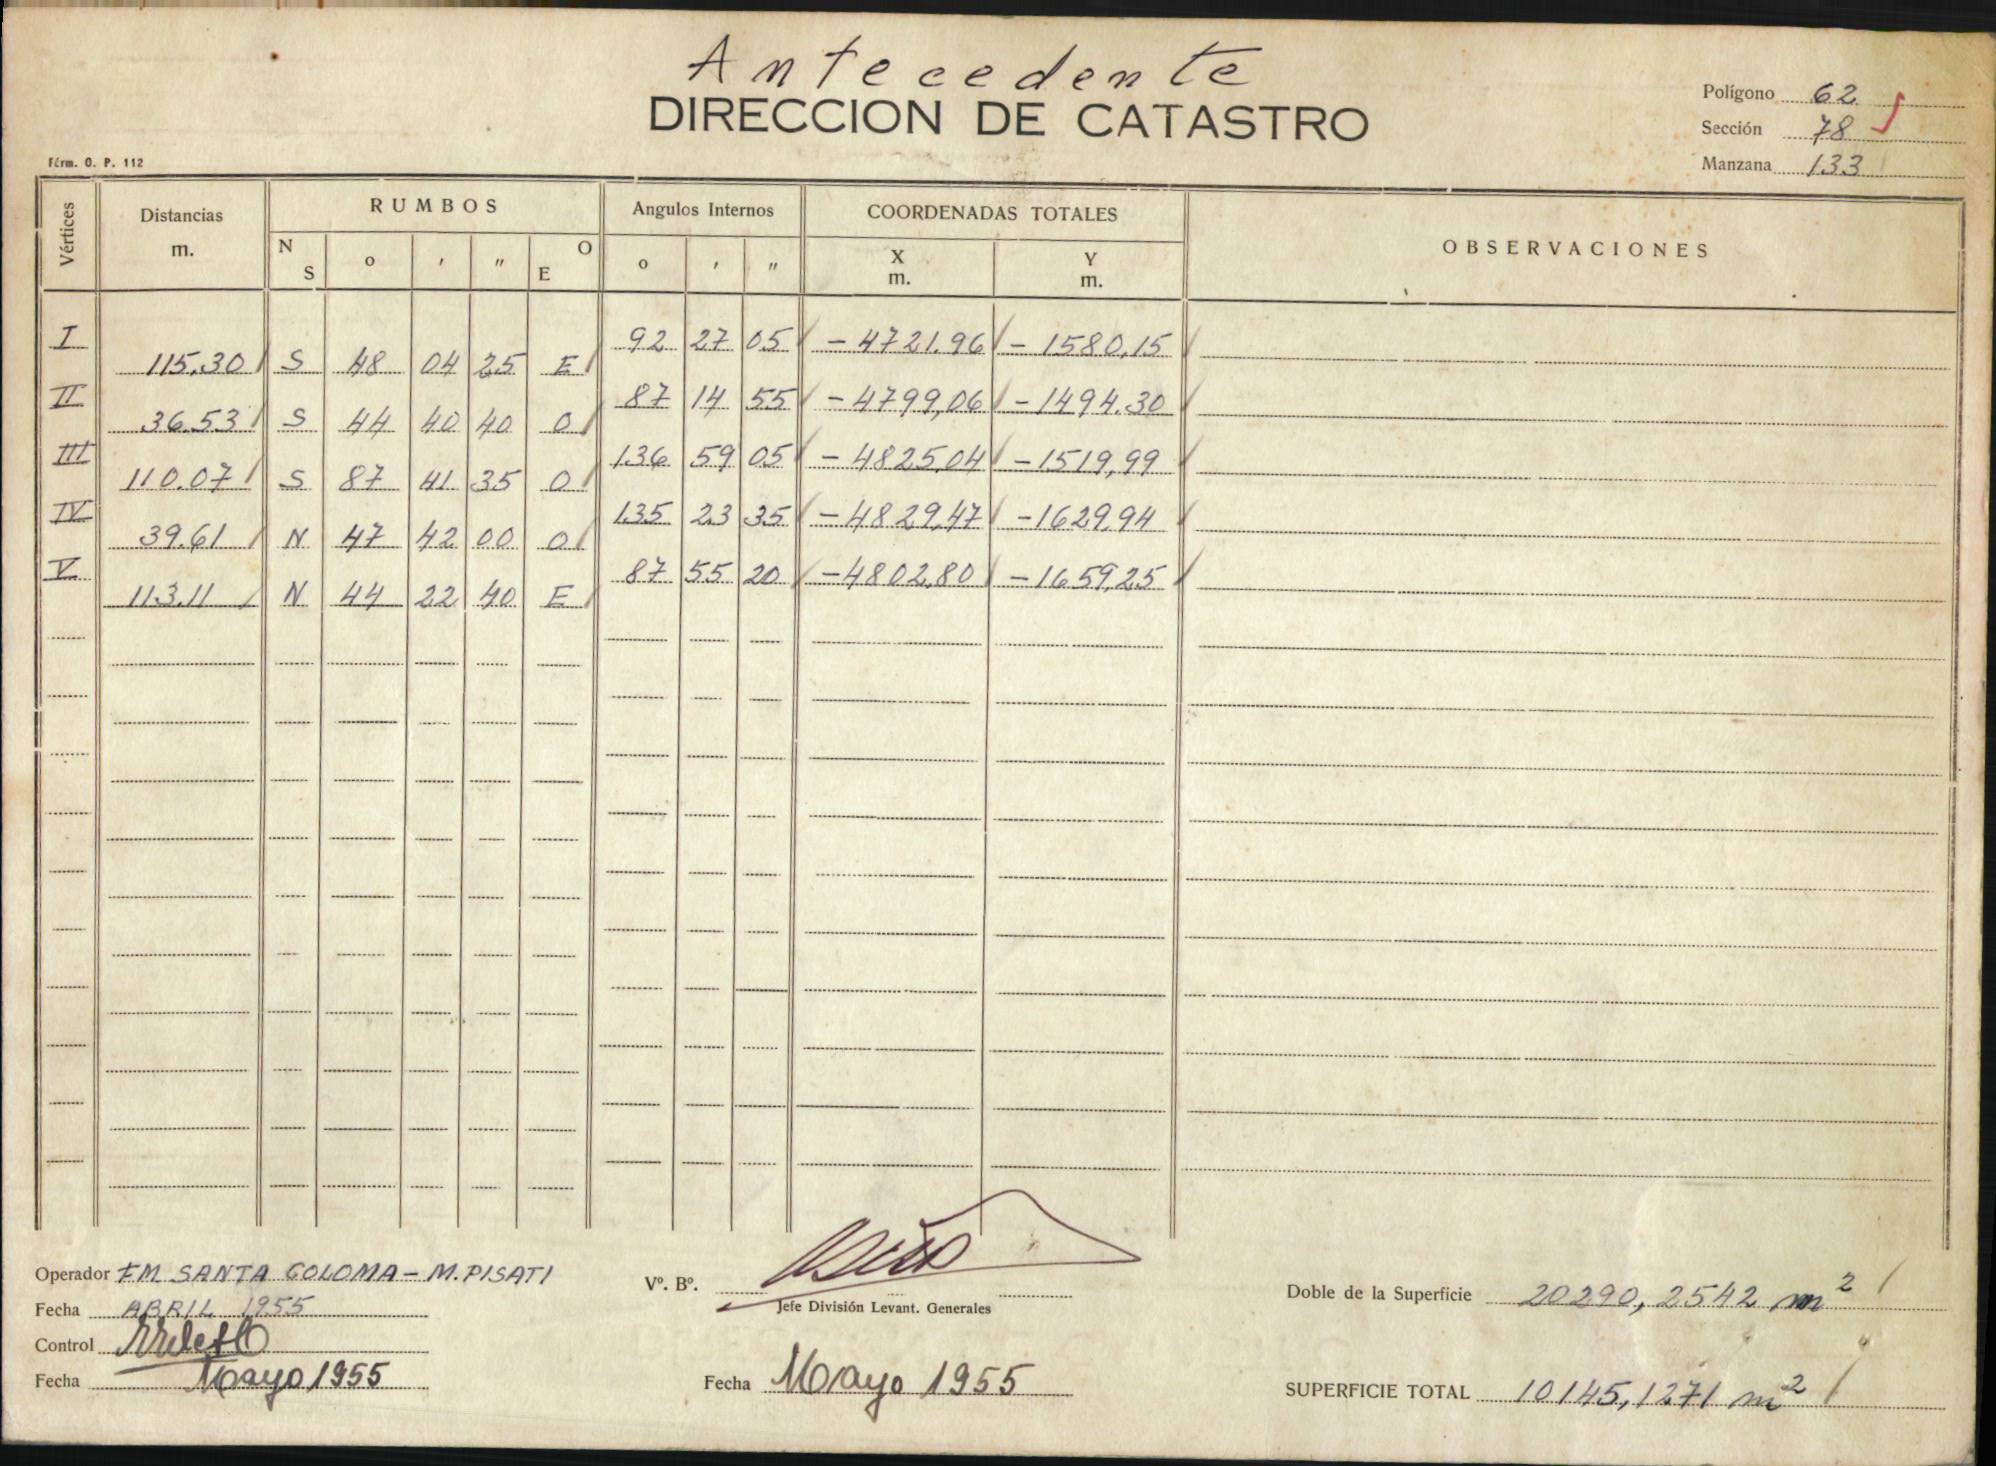 Antecedente
DIRECCION DE CATASTRO
Polígono 62
Sección 78
Manzana 133
Fórm. O. P. 112
Vértices Distancias m. RUMBOS Angulos Internos COORDENADAS TOTALES OBSERVACIONES
N S o ' " O E o ' " X m. Y m.
I 92 27 05 -4721.96 -1580,15
115,30 S 48 04 25 E
II 87 14 55 -4799,06 -1494.30
36.53 S 44 40 40 O
III 136 59 05 -4825,04 -1519,99
110.07 S 87 41 35 O
IV 135 23 35 -4829,47 -1629,94
39.61 N 47 42 00 O
V 87 55 20 -4802,80 -1659,25
113.11 N 44 22 40 E
Operador EM SANTA COLOMA - M. PISATI
Fecha ABRIL 1955
Control
Fecha Mayo 1955
Vº. Bº.
Jefe División Levant. Generales
Fecha Mayo 1955
Doble de la Superficie 20290,2542 m²
SUPERFICIE TOTAL 10145,1271 m²